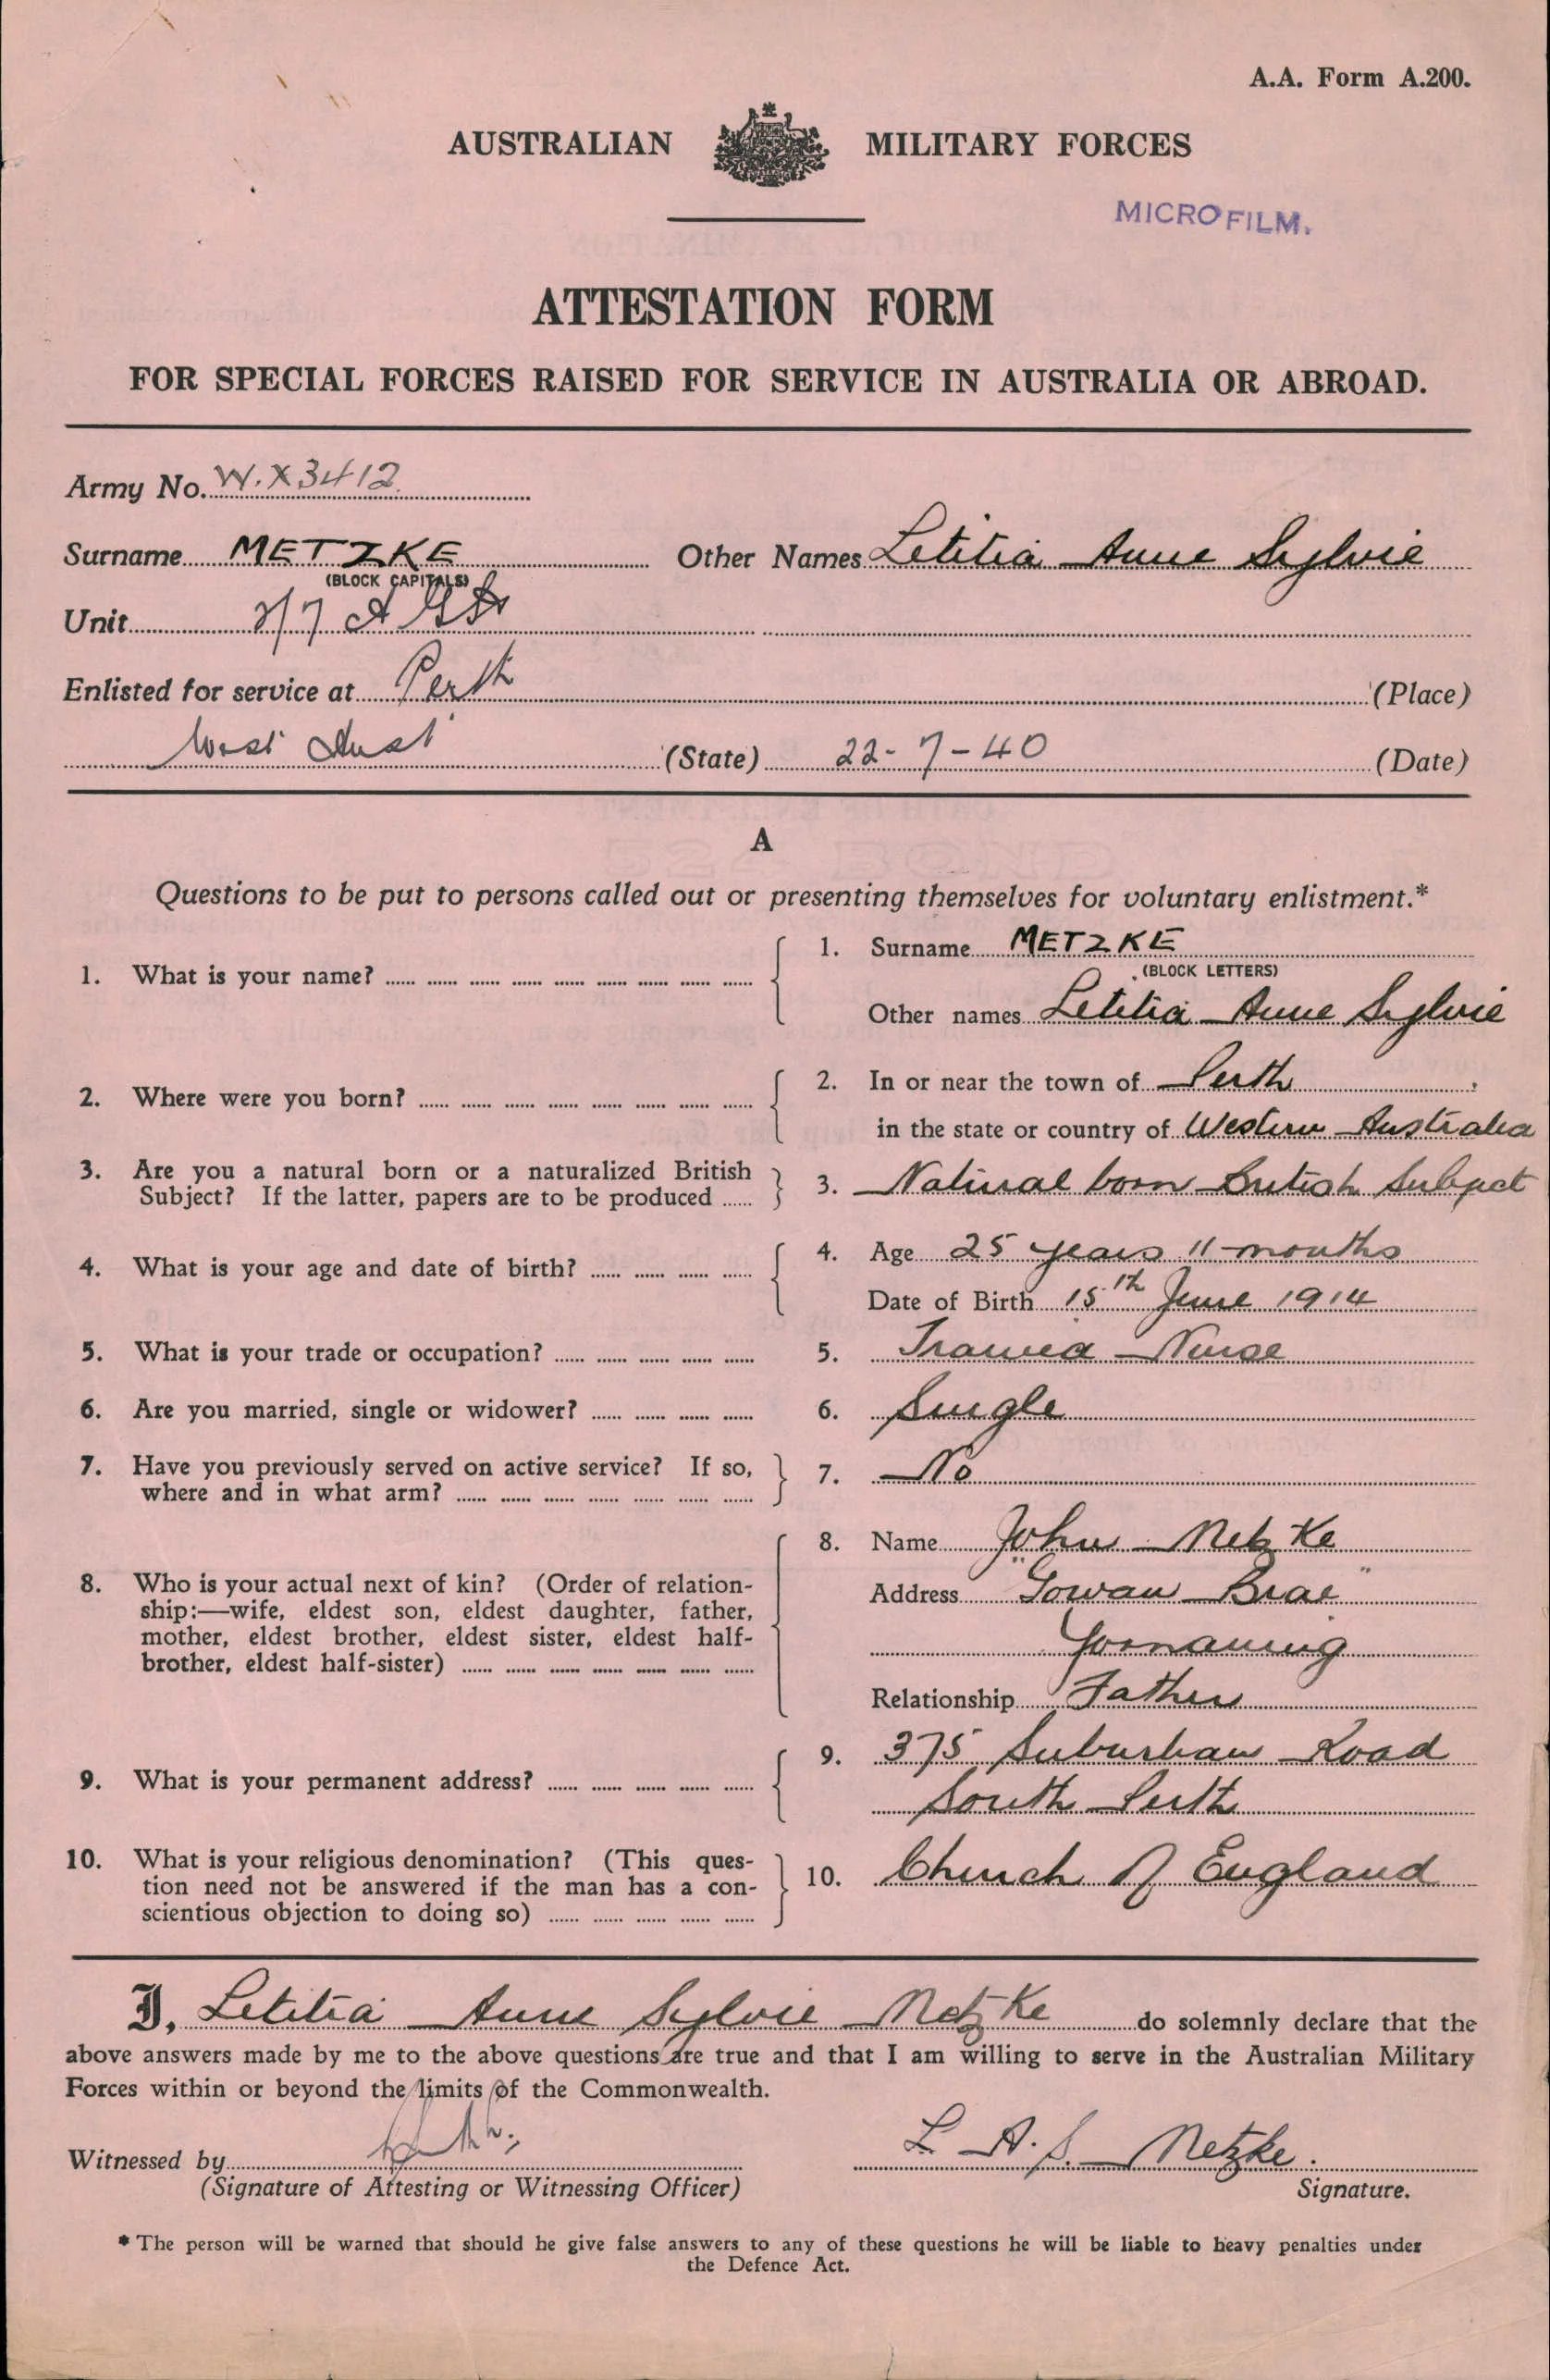 A.A. Form A.200.
AUSTRALIAN MILITARY FORCES
MICROFILM.
ATTESTATION FORM
FOR SPECIAL FORCES RAISED FOR SERVICE IN AUSTRALIA OR ABROAD.
Army No. W.X3412
Surname METZKE Other Names Letitia Anne Sylvie
(BLOCK CAPITALS)
Unit 2/7 A G
Enlisted for service at Perth (Place)
West Aust (State) 22-7-40 (Date)
A
Questions to be put to persons called out or presenting themselves for voluntary enlistment.*
1. What is your name? 1. Surname METZKE
(BLOCK LETTERS)
Other names Letitia Anne Sylvie
2. Where were you born? 2. In or near the town of Perth
in the state or country of Western Australia
3. Are you a natural born or a naturalized British
Subject? If the latter, papers are to be produced 3. Natural born British Subject
4. What is your age and date of birth? 4. Age 25 years 11 months
Date of Birth 15th June 1914
5. What is your trade or occupation? 5. Trained Nurse
6. Are you married, single or widower? 6. Single
7. Have you previously served on active service? If so,
where and in what arm? 7. No
8. Name John Metzke
8. Who is your actual next of kin? (Order of relation- Address "Gowan Brae"
ship:—wife, eldest son, eldest daughter, father,
mother, eldest brother, eldest sister, eldest half- Yornaning
brother, eldest half-sister)
Relationship Father
9. What is your permanent address? 9. 375 Suburban Road
South Perth
10. What is your religious denomination? (This ques-
tion need not be answered if the man has a con- 10. Church of England
scientious objection to doing so)
I, Letitia Anne Sylvie Metzke do solemnly declare that the
above answers made by me to the above questions are true and that I am willing to serve in the Australian Military
Forces within or beyond the limits of the Commonwealth.
Witnessed by L. A. S. Metzke.
(Signature of Attesting or Witnessing Officer) Signature.
* The person will be warned that should he give false answers to any of these questions he will be liable to heavy penalties under
the Defence Act.